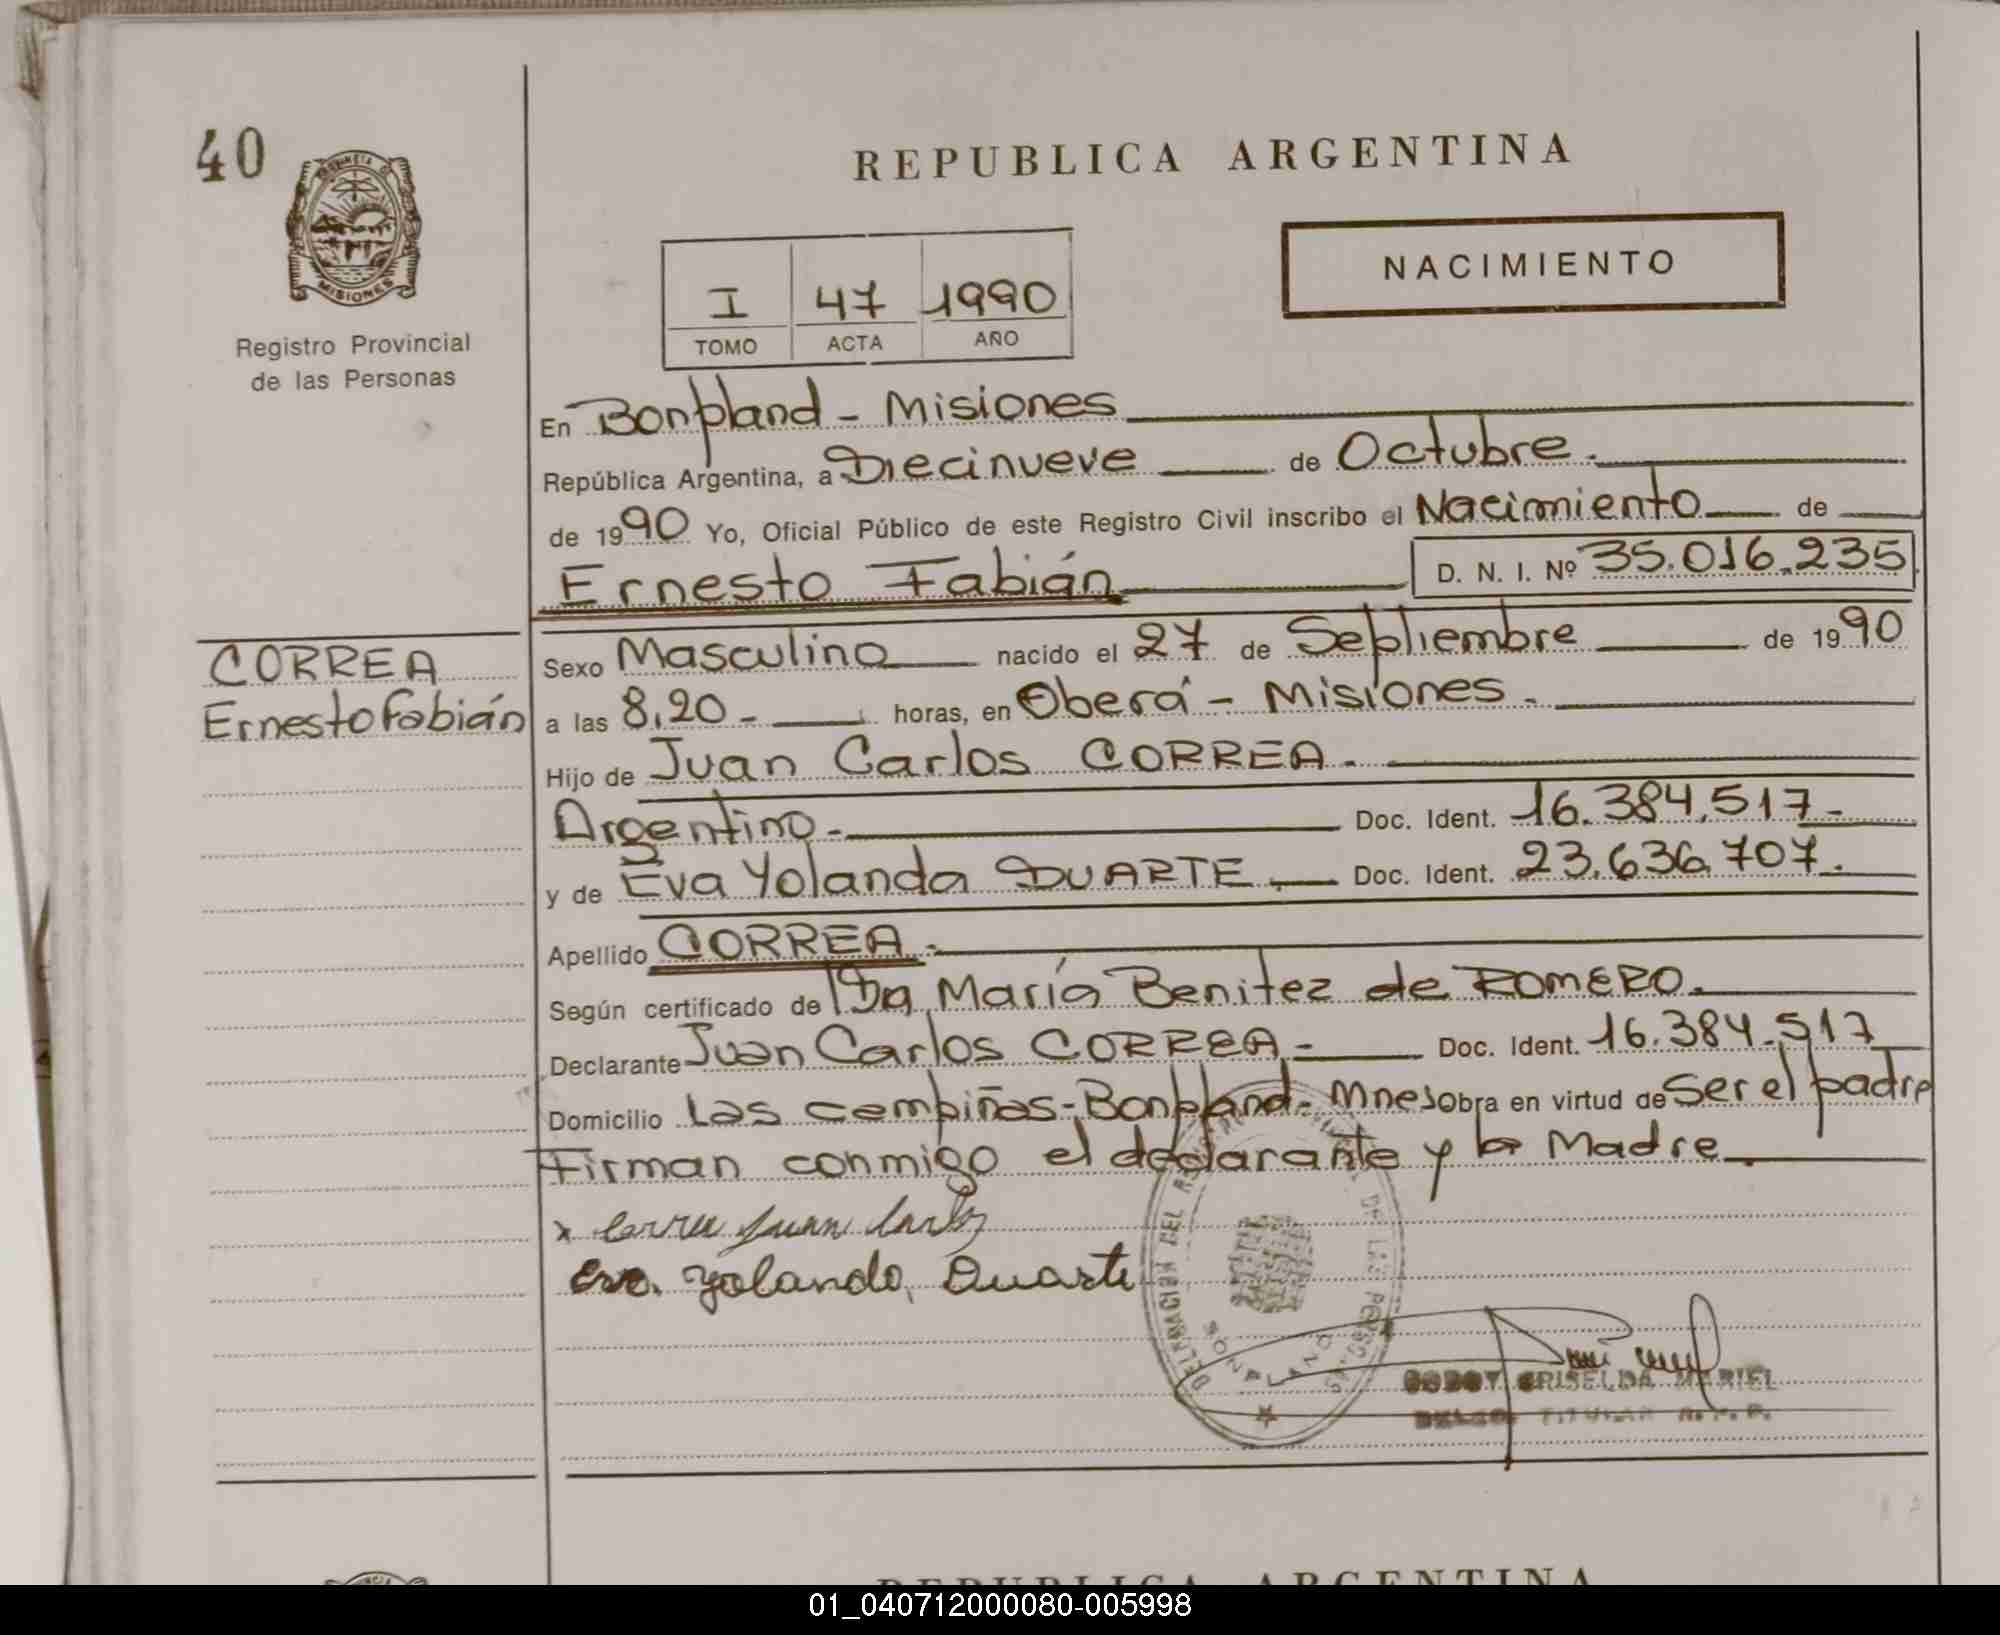 40
PROVINCIA DE
MISIONES
Registro Provincial
de las Personas
REPUBLICA ARGENTINA
NACIMIENTO
I 47 1990
TOMO ACTA AÑO
En Bonpland - Misiones
República Argentina, a Diecinueve de Octubre.
de 1990 Yo, Oficial Público de este Registro Civil inscribo el Nacimiento de
Ernesto Fabián D. N. I. Nº 35.016.235
CORREA
Ernesto Fabián
Sexo Masculino nacido el 27 de Septiembre de 1990
a las 8,20 - horas, en Oberá - Misiones -
Hijo de Juan Carlos CORREA -
Argentino - Doc. Ident. 16.384.517-
y de Eva Yolanda DUARTE - Doc. Ident. 23.636.707.
Apellido CORREA -
Según certificado de Da, María Benitez de ROMERO.
Declarante Juan Carlos CORREA - Doc. Ident. 16.384.517
Domicilio Las campiñas - Bonpland - Mnes Obra en virtud de Ser el padre
Firman conmigo el declarante y la Madre
x Correa Juan Carlos
Eva Yolanda Duarte
DELEGACION DEL DE LAS PERSONAS
BONPLAND
GODOY GRISELDA MARIEL
TITULAR R. P. P.
REPUBLICA ARGENTINA
01_040712000080-005998